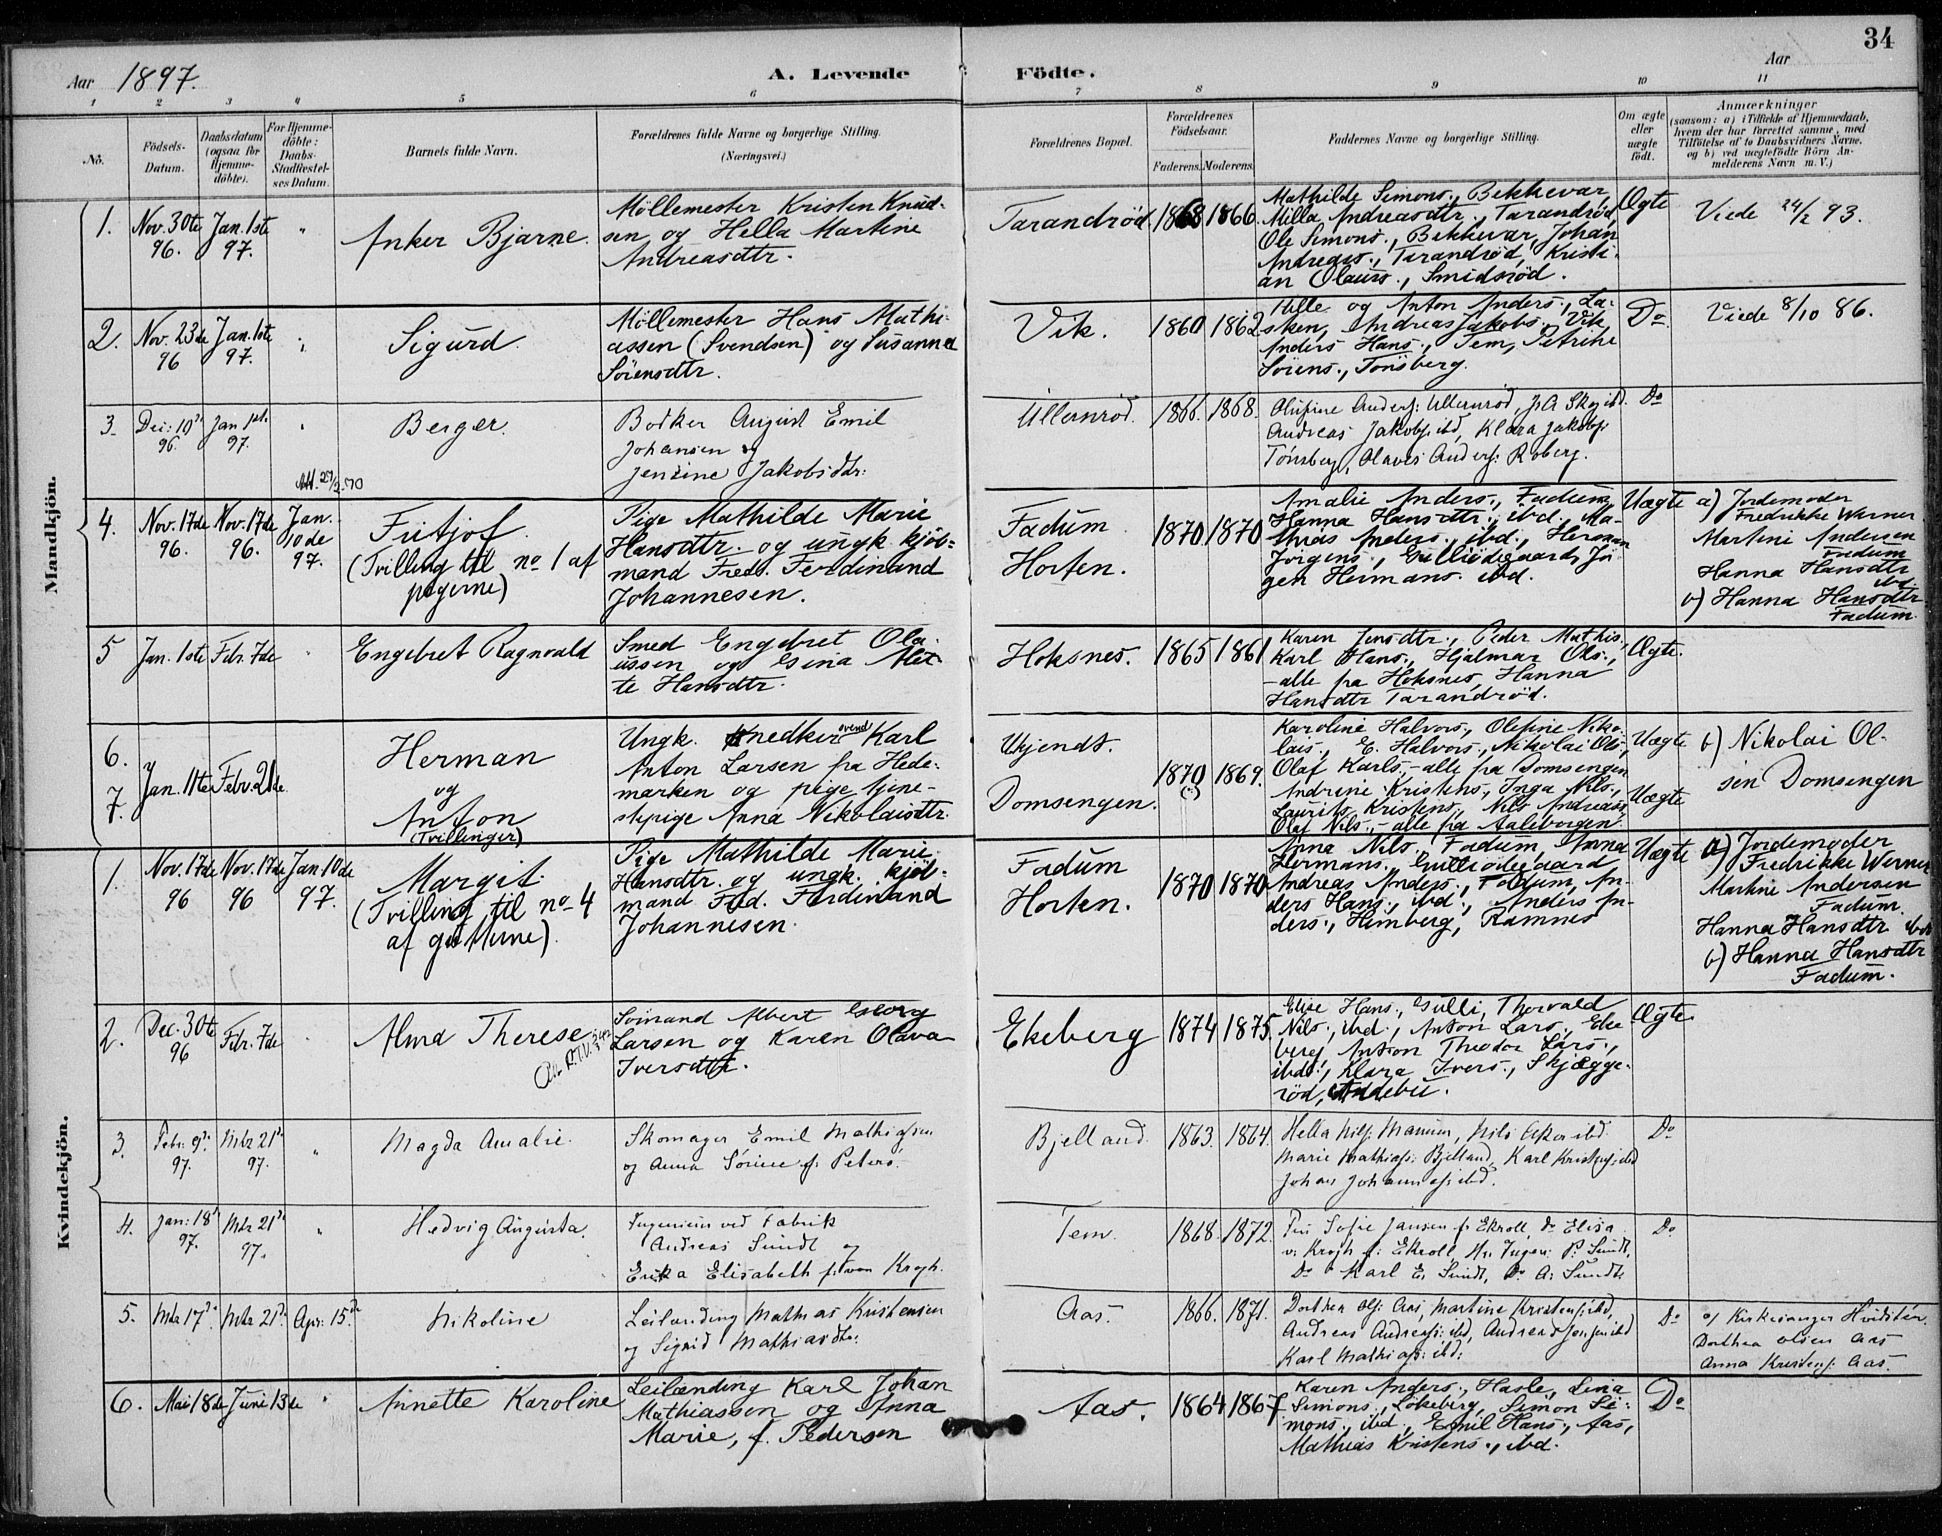 34
Aar 1897.
A. Levende Födte.
Aar
1 2 3 4 5 6 7 8 9 10 11
No.
Födsels-Datum.
Daabsdatum (ogsaa for Hjemme-döbte).
For Hjemme-döbte: Daabs-Stadfæstel-ses Datum.
Barnets fulde Navn.
Forældrenes fulde Navne og borgerlige Stilling.
(Næringsvei.)
Forældrenes Bopæl.
Forældrenes Födselsaar.
Faderens. Moderens.
Faddernes Navne og borgerlige Stilling.
Om ægte eller uægte födt.
Anmærkninger
(saasom: a) i Tilfælde af Hjemmedaab, hvem der har forrettet samme, med Tilföielse af to Daabsvidners Navne, og b) ved uægtefödte Börn An-melderens Navn m. V.)
Mandkjön.
1.
Nov. 30te 96.
Jan. 1ste 97.
"
Anker Bjarne.
Möllemester Kristen Knud-
sen og Hella Martine
Andreasdtr.
Tarandröd.
1868
1866.
Mathilde Simons., Bekkevar,
Milla Andreasdtr., Tarandröd,
Ole Simons., Bekkevar, Johan
Andreas., Tarandröd, Kristi-
an Olaus., Smidsröd.
Ægte
Viede 24/2 93.
2.
Nov. 23de 96
Jan. 1ste 97.
"
Sigurd
Möllemester Hans Mathi-
assen (Svendsen) og Susanna
Sörensdtr.
Vik.
1860
1862
Hella og Anton Anders., La-
sken, Andreas Jakobs., Vik,
Anders Hans., Tem, Petrine
Sörens., Tönsberg.
Do
Viede 8/10 86.
3.
Dec: 19de 96.
Jan 1st. 97.
"
Berger.
Bödker August Emil
Johansen og
Jensine Jakobsdtr:
Ullernröd.
1866.
1868.
Olufine Anders: Ullernröd,
Andreas Jakobs: ibd, Klara Jakobs:
Tönsberg, Olaves Anders: Roberg.
Do
4.
Nov. 17de 96.
Nov. 17de 96.
Jan. 10de 97.
Fritjof
(Tvilling til no 1 af
pigerne)
Pige Mathilde Marie
Hansdtr. og ungk. kjöb-
mand Fred. Ferdinand
Johannesen.
Fadum
Horten.
1870
1870
Amalie Anders., Fadum,
Hanna Hansdtr., ibd., Ma-
thias Anders., ibd., Herman
Jörgens., Gulliödegaard, Jör-
gen Hermans. ibd.
Uægte
a) Jordemoder
Fredrikke Werner
Martine Andersen
Fadum
Hanna Hansdtr
ibd.
b) Hanna Hansdtr
Fadum.
5
Jan. 1ste
Febr. 7de
"
Engebret Ragnvald
Smed Engebret Ola-
ussen og Gina Met-
te Hansdtr.
Hoksnes.
1865
1861
Karen Jensdtr., Peder Mathis.,
Karl Hans., Hjalmar Ols.,
-alle fra Hoksnes, Hanna
Hansdtr Tarandröd.
Ægte.
6.
7.
Jan. 11te
Febr. 21de.
Herman
og
Anton
(Tvillinger)
Ungk. snedkersvend Karl
Anton Larsen fra Hede-
marken og pige tjene-
stepige Anna Nikolaisdtr.
Ukjendt.
Domsengen.
1870
(?)
1869.
Karoline Halvors., Olefine Niko-
lais., E. Halvors., Nikolai Ols.,
Olaf Karls., - alle fra Domsengen
Andrine Kristens., Inga Nils.,
Laurits Kristens., Nils Andreas.,
Olaf Nils., - alle fra Aaleborgen.
Uægte
Uægte
b) Nikolai Ol-
sen Domsengen
Kvindekjön.
1.
Nov. 17de 96
Nov. 17de 96
Jan 10de 97.
Margit.
(Tvilling til no 4
af gutterne).
Pige Mathilde Marie
Hansdtr. og ungk. kjöb-
mand Fred. Ferdinand
Johannesen.
Fadum
Horten.
1870
1870
Anna Nils., Fadum, Anna
Hermans., Gulliödegaard
Andreas Anders., Fadum, An-
ders Hans., ibd., Anders An-
ders., Himberg, Ramnes
Uægte
a) Jordemoder
Fredrikke Werner
Martine Andersen
Fadum.
Hanna Hansdtr ibd.
b) Hanna Hansdtr
Fadum.
2.
Dec. 30te 96
Febr. 7de
"
Alma Therese
Sömand Albert Georg
Larsen og Karen Olava
Iversdtr.
Ekeberg
1874
1875.
Elise Hans., Gulli, Thorvald
Nils., ibd., Anton Lars., Eke-
berg, Anton Theodor Lars.,
ibd., Klara Ivers., Skjægge-
röd, Andebu.
Ægte
3.
Febr. 9de 97.
Mts 21de 97.
"
Magda Amalie.
Skomager Emil Mathiassen
og Anna Sörine f: Peters.
Bjelland.
1863.
1864.
Hella Nils: Manum, Nils ibd.
Marie Mathias: Bjelland, Karl Kristens: ibd
Johan Johannes: ibd.
Do
4.
Jan: 18de 97.
Mts 21de 97.
"
Hedvig Augusta.
Ingeniör ved Fabrik
Andreas Sundt og
Erika Elisabeth f: von Krogh.
Tem.
1868.
1872.
Fru Sofie Jansen f: Ekroll, Do Elisa
v. Krogh f: Ekroll, Hr. Ingen: P. Sundt,
Do Karl E. Sundt, Do A: Sundt.
Do
5.
Mts 17de
Mts 21de
Apr: 15de
Nikoline
Leilænding Mathias Kristensen
og Sigrid Mathiasdtr:
Aas.
1866.
1871.
Dorthea Ols: Aas, Martine Kristens: ibd,
Andreas Andreas: ibd, Andreas ibd
Karl Mathias: ibd:
Do
a/ Kirkesanger Hvidsten.
Dorthea Olsen Aas
Anna Kristens: Aas.
6.
Mai 18de
Juni 13de
"
Annette Karoline
Leilænding Karl Johan
Mathiassen og Anna
Marie, f. Pedersen
Aas.
1864
1867
Karen Anders., Hasle, Lina
Simons., Lökeberg, Simon Si-
mons., ibd., Emil Hans., Aas,
Mathias Kristens., ibd.
Do